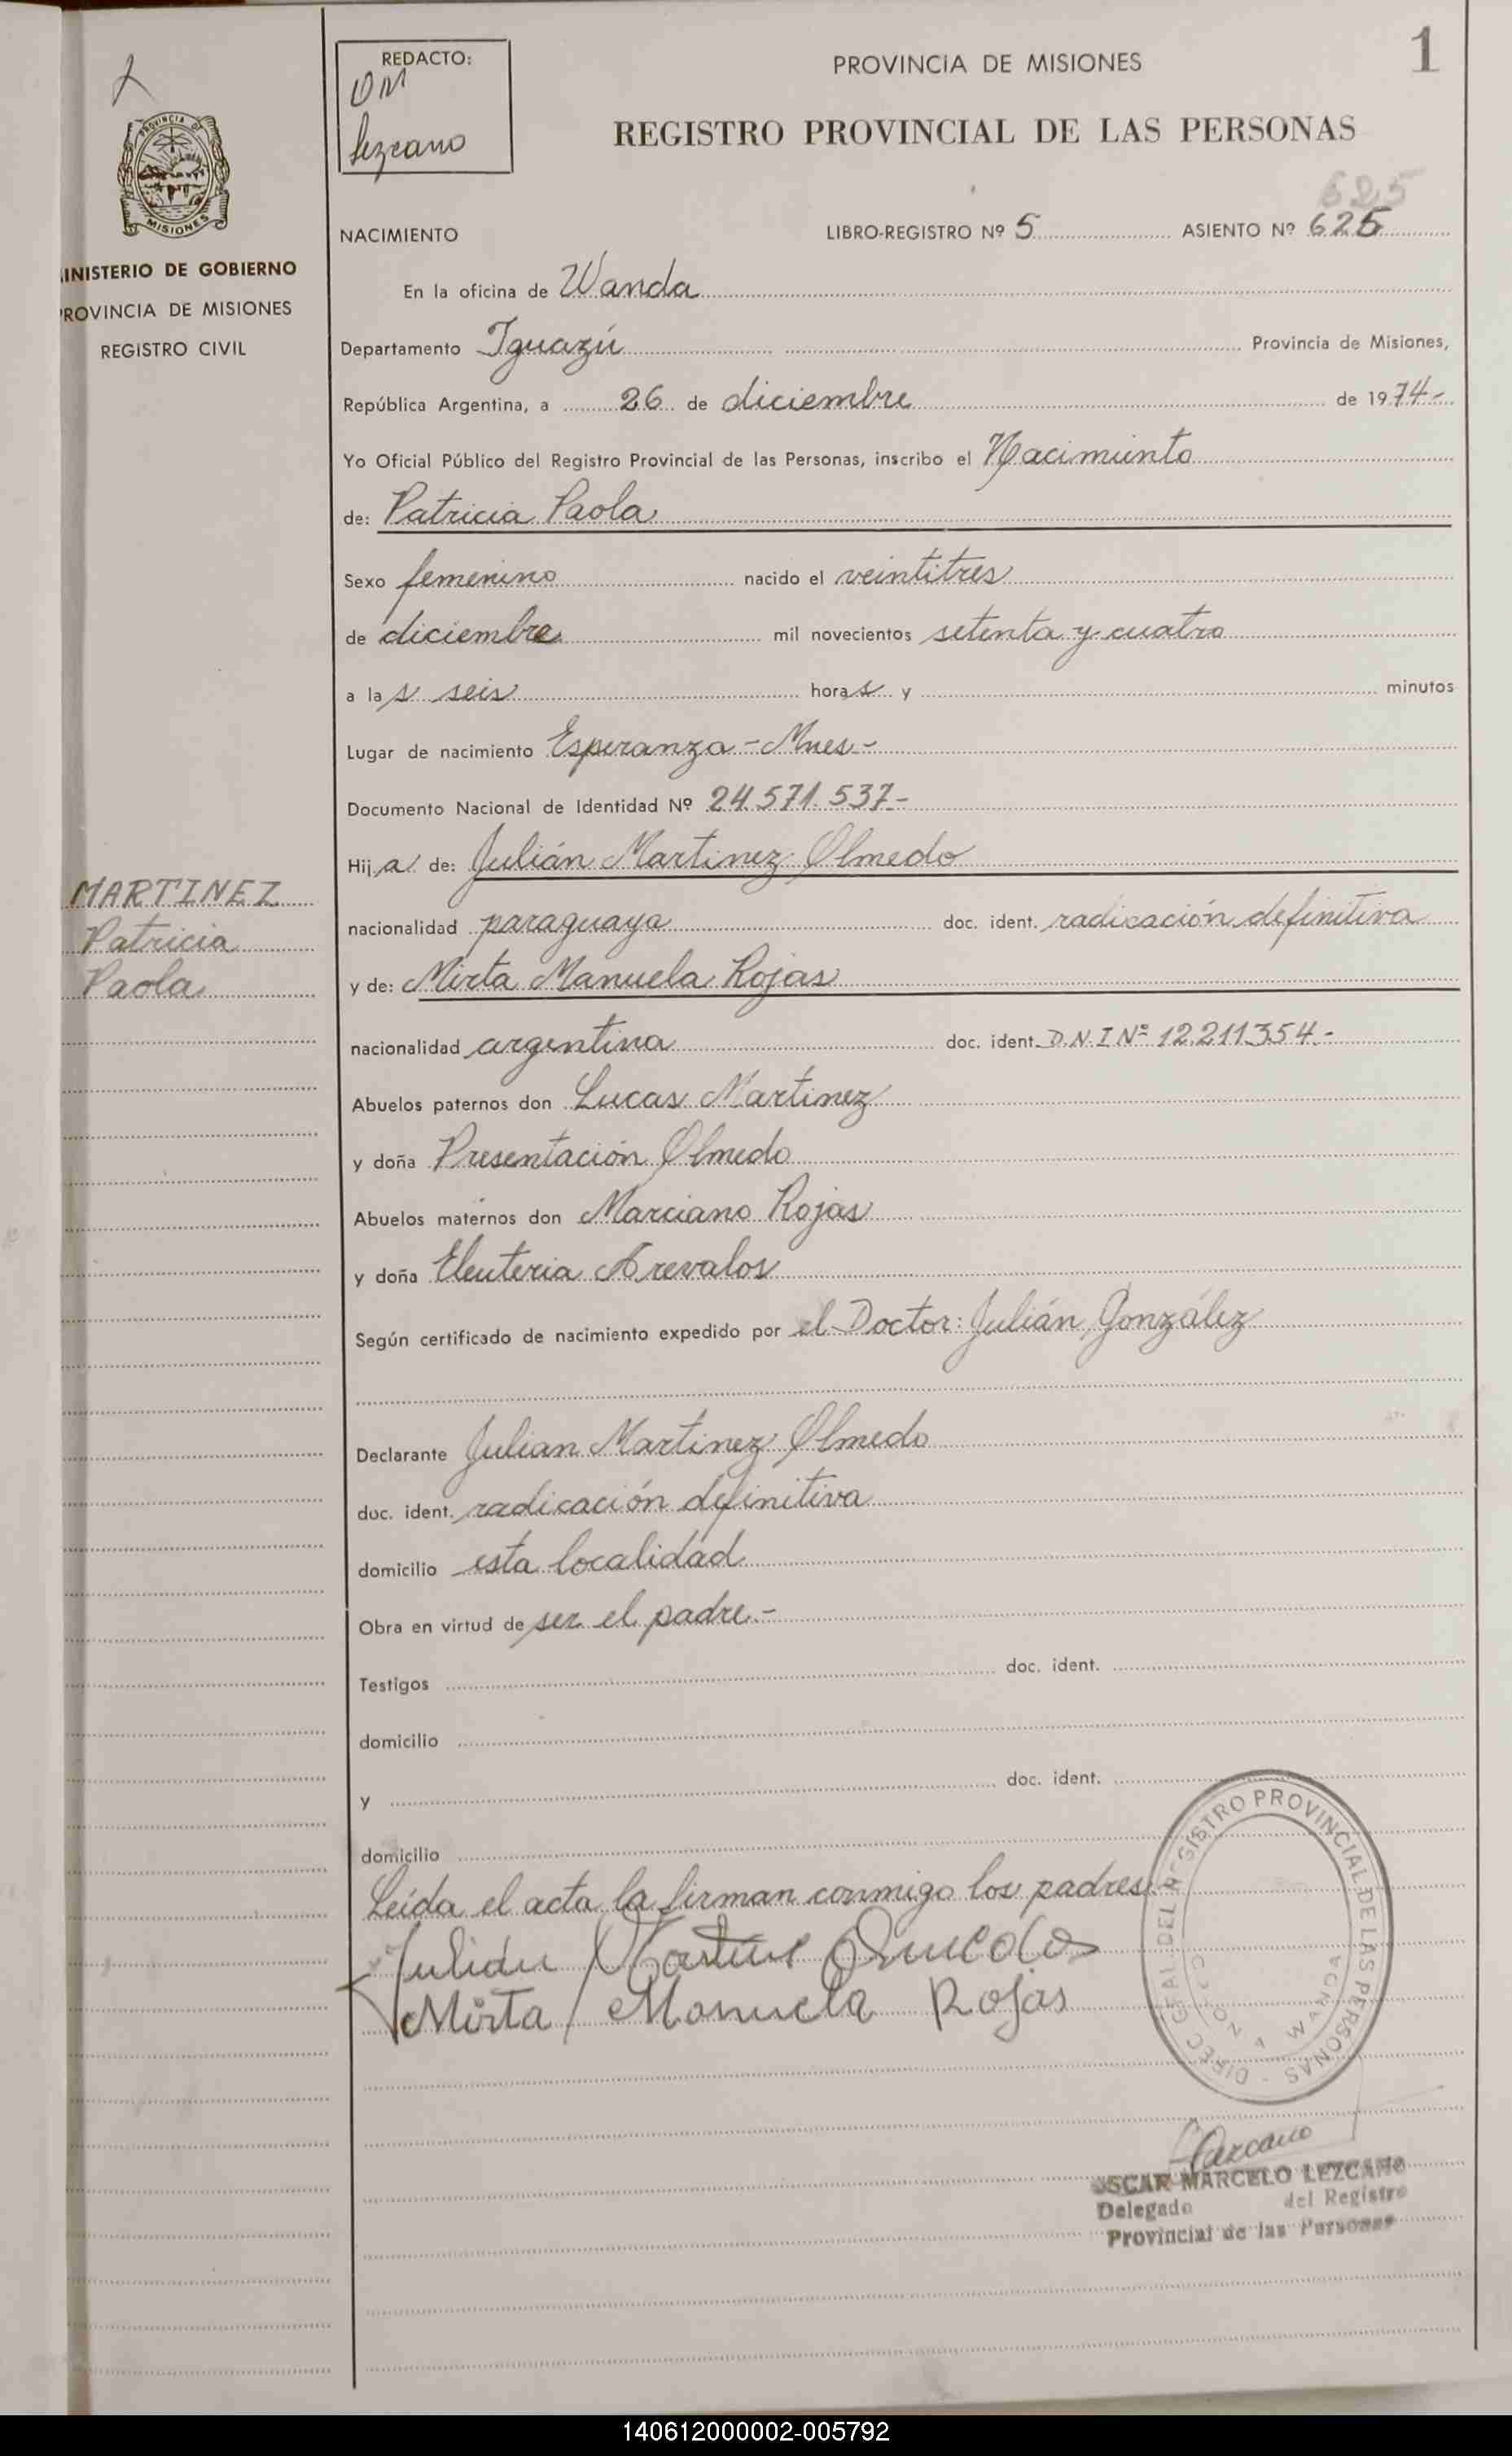 1
REDACTO:
OM
Lezcano
PROVINCIA DE MISIONES
REGISTRO PROVINCIAL DE LAS PERSONAS
PROVINCIA DE
MISIONES
INISTERIO DE GOBIERNO
PROVINCIA DE MISIONES
REGISTRO CIVIL
625
NACIMIENTO LIBRO-REGISTRO Nº 5 ASIENTO Nº 625
En la oficina de Wanda
Departamento Iguazú Provincia de Misiones,
República Argentina, a 26 de diciembre de 1974-
Yo Oficial Público del Registro Provincial de las Personas, inscribo el Nacimiento
de: Patricia Paola
Sexo femenino nacido el veintitres
de diciembre mil novecientos setenta y cuatro
a las seis horas y minutos
Lugar de nacimiento Esperanza-Mnes-
Documento Nacional de Identidad Nº 24.571.537-
Hija de: Julián Martinez Olmedo
MARTINEZ
Patricia
Paola
nacionalidad paraguaya doc. ident. radicación definitiva
y de: Mirta Manuela Rojas
nacionalidad argentina doc. ident. D.N.I Nº 12.211354.-
Abuelos paternos don Lucas Martinez
y doña Presentación Olmedo
Abuelos maternos don Marciano Rojas
y doña Eleuteria Arevalos
Según certificado de nacimiento expedido por el Doctor: Julián González
Declarante Julian Martinez Olmedo
doc. ident. radicación definitiva
domicilio esta localidad
Obra en virtud de ser el padre.-
Testigos doc. ident.
domicilio
y doc. ident.
domicilio
Leída el acta la firman conmigo los padres.
Julián Martinez Olmedo
Mirta Manuela Rojas
DIREC. GRAL. DEL REGISTRO PROVINCIAL DE LAS PERSONAS
WANDA
Lezcano
OSCAR MARCELO LEZCANO
Delegado del Registro
Provincial de las Personas
140612000002-005792